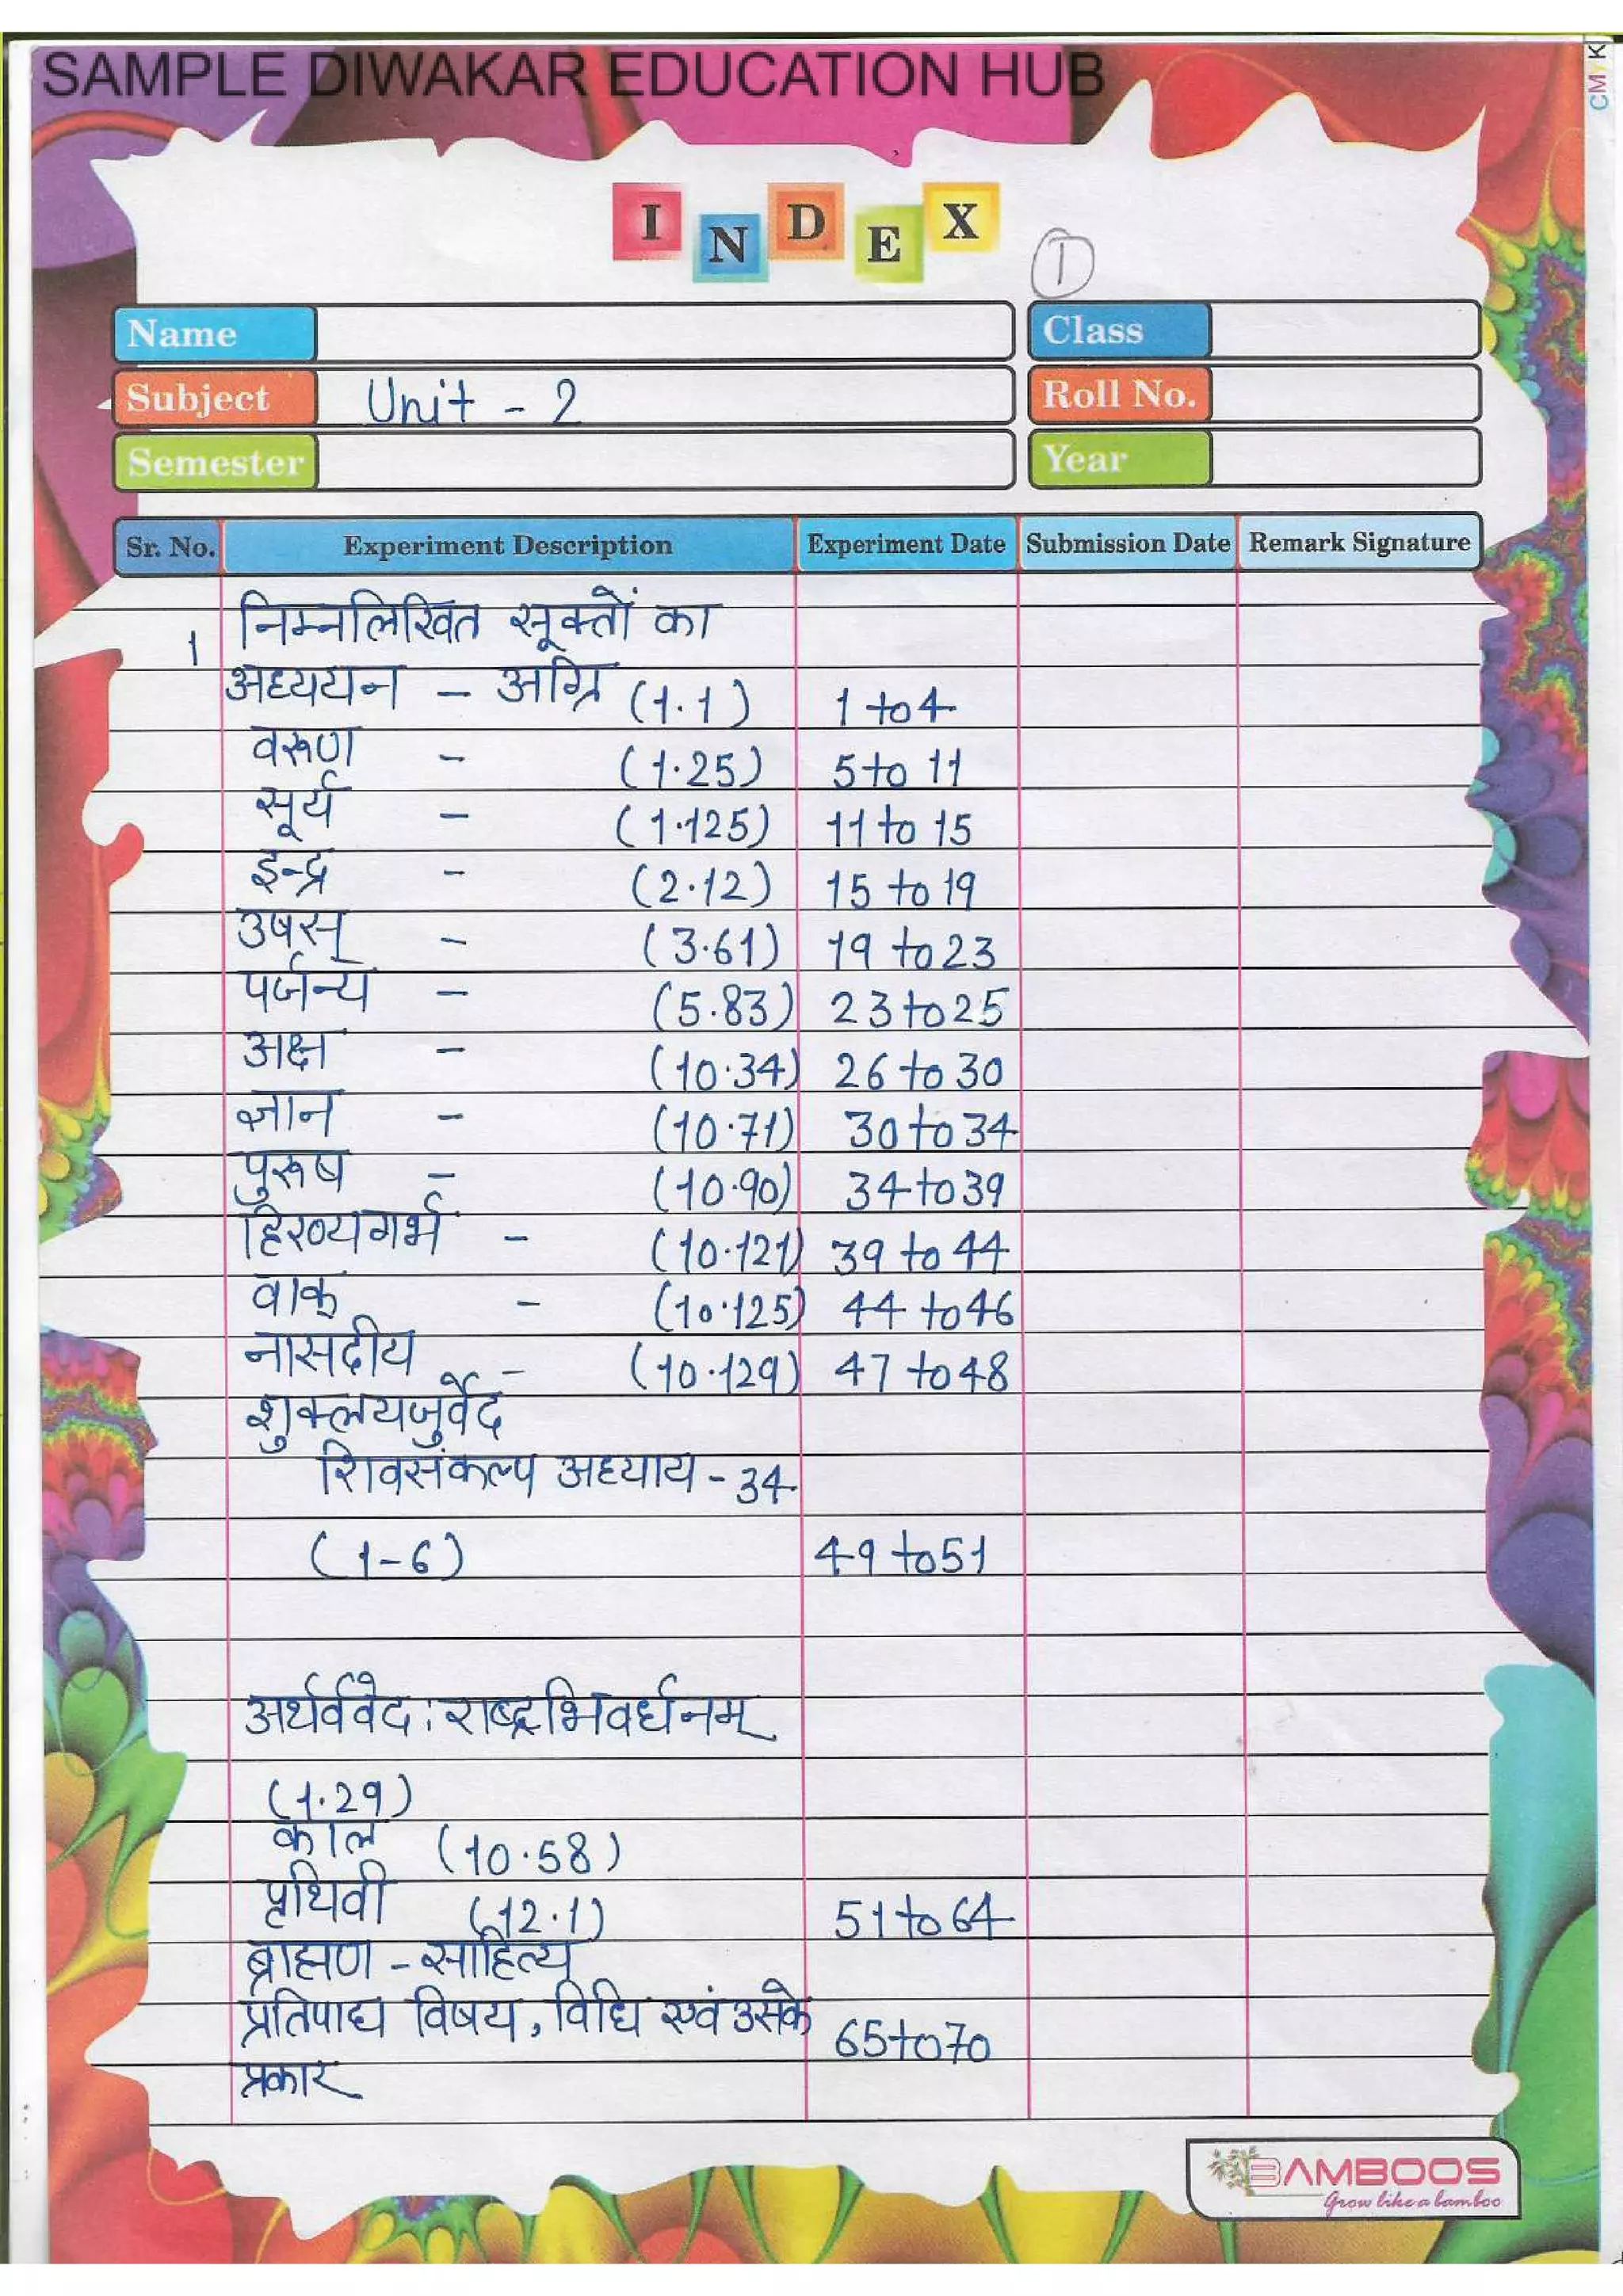 SAMPLE DIWAKAR EDUCATION HUB
CMYK
INDEX
1
Name
Class
Subject Unit - 2
Roll No.
Semester
Year
Sr. No. Experiment Description Experiment Date Submission Date Remark Signature
1 निम्नलिखित सूक्तों का
अध्ययन - अग्नि (1.1) 1 to 4
वरूण - (1.25) 5 to 11
सूर्य - (1.125) 11 to 15
इन्द्र - (2.12) 15 to 19
उषस् - (3.61) 19 to 23
पर्जन्य - (5.83) 23 to 25
अक्ष - (10.34) 26 to 30
ज्ञान - (10.71) 30 to 34
पुरूष - (10.90) 34 to 39
हिरण्यगर्भ - (10.121) 39 to 44
वाक् - (10.125) 44 to 46
नासदीय - (10.129) 47 to 48
शुक्लयजुर्वेद
शिवसंकल्प अध्याय - 34
(1-6) 49 to 51
अर्थववेद : राष्ट्रभिवर्धनम्
(1.29)
काल (10.58)
पृथिवी (12.1) 51 to 64
ब्राह्मण - साहित्य
प्रतिपाद्य विषय, विधि एवं उसके 65 to 70
प्रकार
BAMBOOS
Grow like a bamboo